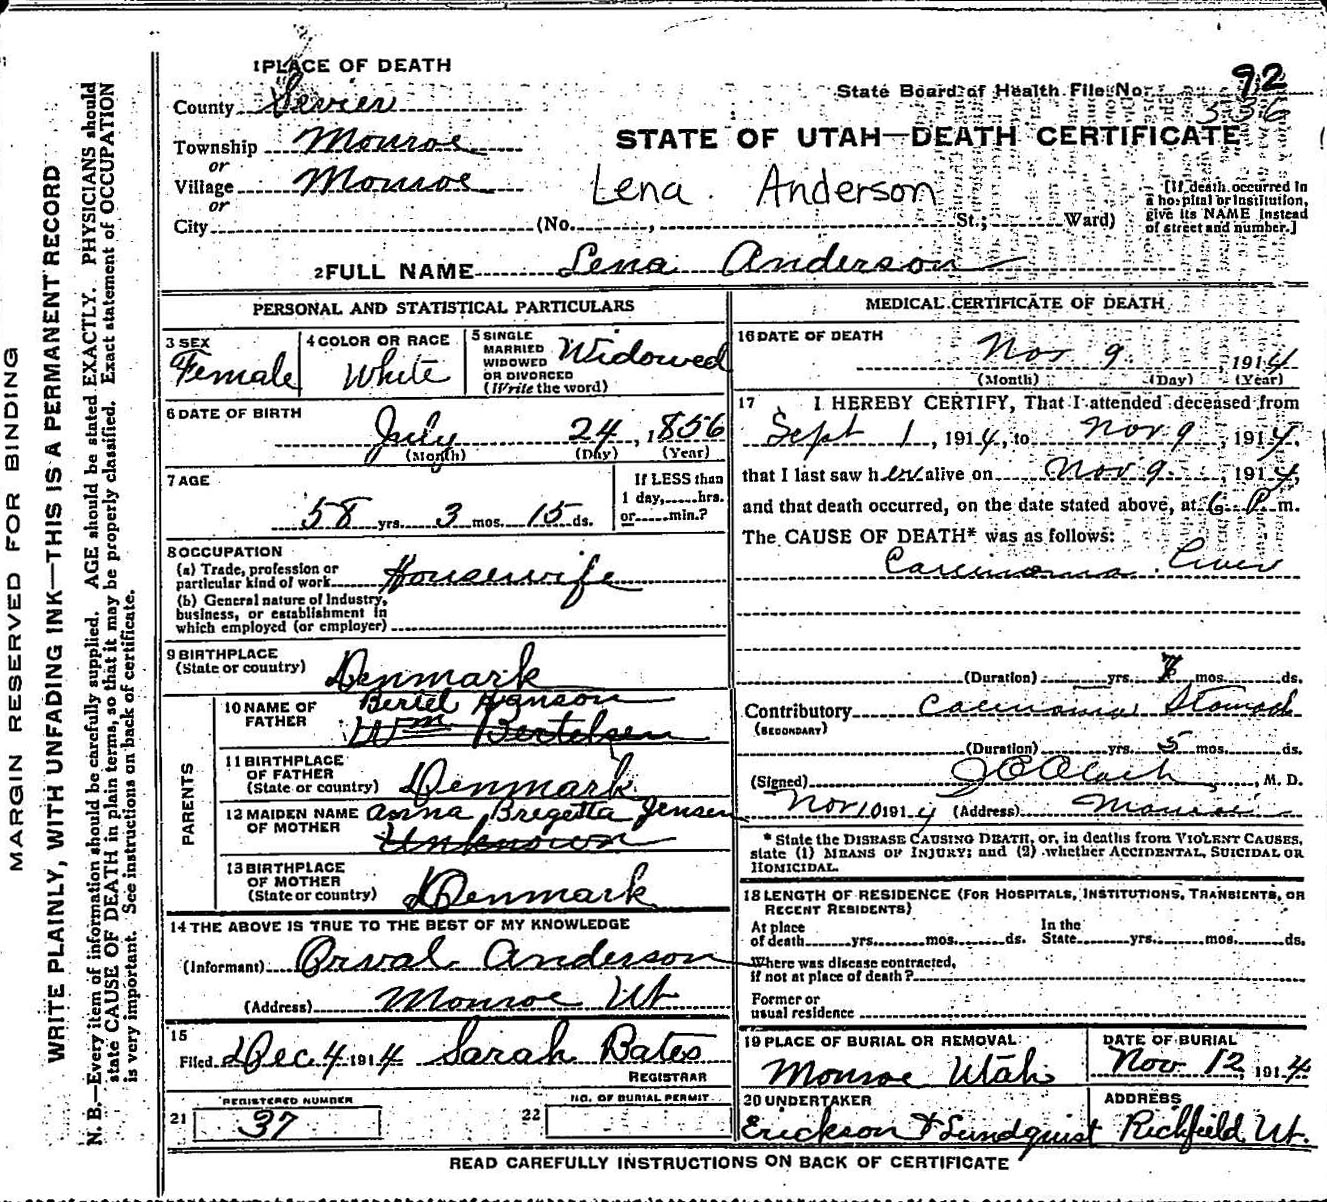 1 PLACE OF DEATH
County Sevier
Township Monroe
or
Village Monroe
or
City (No. , St.; Ward)
State Board of Health File No. 92
336
STATE OF UTAH—DEATH CERTIFICATE
Lena Anderson
[If death occurred in
a hospital or institution,
give its NAME instead
of street and number.]
2 FULL NAME Lena Anderson
PERSONAL AND STATISTICAL PARTICULARS
3 SEX
Female
4 COLOR OR RACE
White
5 SINGLE
MARRIED
WIDOWED
OR DIVORCED
(Write the word)
Widowed
6 DATE OF BIRTH
July 24, 1856
(Month) (Day) (Year)
7 AGE
58 yrs. 3 mos. 15 ds.
If LESS than
1 day, hrs.
or min.?
8 OCCUPATION
(a) Trade, profession or
particular kind of work Housewife
(b) General nature of Industry,
business, or establishment in
which employed (or employer)
9 BIRTHPLACE
(State or country) Denmark
PARENTS
10 NAME OF
FATHER
Bertel Hanson
Wm Bertelsen
11 BIRTHPLACE
OF FATHER
(State or country) Denmark
12 MAIDEN NAME
OF MOTHER
Anna Bregetta Jensen
Unknown
13 BIRTHPLACE
OF MOTHER
(State or country) Denmark
14 THE ABOVE IS TRUE TO THE BEST OF MY KNOWLEDGE
(Informant) Orval Anderson
(Address) Monroe Ut
15
Filed Dec 4 1914 Sarah Bates
REGISTRAR
REGISTERED NUMBER
21 37
NO. OF BURIAL PERMIT
22
MEDICAL CERTIFICATE OF DEATH
16 DATE OF DEATH
Nov 9 1914
(Month) (Day) (Year)
17 I HEREBY CERTIFY, That I attended deceased from
Sept 1, 1914, to Nov 9, 1914,
that I last saw her alive on Nov 9, 1914,
and that death occurred, on the date stated above, at 6 P. m.
The CAUSE OF DEATH* was as follows:
Carcinoma Liver
(Duration) yrs. mos. ds.
Contributory Carcinoma Stomach
(SECONDARY)
(Duration) yrs. 5 mos. ds.
(Signed) , M. D.
Nov 10 1914 (Address) Monroe
* State the DISEASE CAUSING DEATH, or, in deaths from VIOLENT CAUSES,
state (1) MEANS OF INJURY; and (2) whether ACCIDENTAL, SUICIDAL OR
HOMICIDAL.
18 LENGTH OF RESIDENCE (FOR HOSPITALS, INSTITUTIONS, TRANSIENTS, OR
RECENT RESIDENTS)
At place
of death yrs. mos. ds.
In the
State yrs. mos. ds.
Where was disease contracted,
if not at place of death?
Former or
usual residence
19 PLACE OF BURIAL OR REMOVAL
Monroe Utah
DATE OF BURIAL
Nov 12, 1914
20 UNDERTAKER
Erickson & Lundquist
ADDRESS
Richfield Ut.
READ CAREFULLY INSTRUCTIONS ON BACK OF CERTIFICATE
MARGIN RESERVED FOR BINDING
WRITE PLAINLY, WITH UNFADING INK—THIS IS A PERMANENT RECORD
N. B.—Every item of information should be carefully supplied. AGE should be stated EXACTLY. PHYSICIANS should
state CAUSE OF DEATH in plain terms, so that it may be properly classified. Exact statement of OCCUPATION
is very important. See instructions on back of certificate.